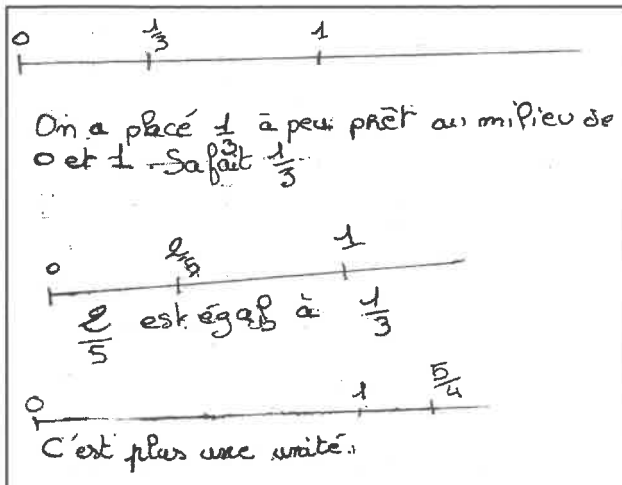 0 1/3 1
On a placé 1/3 à peu prêt au milieu de
0 et 1. Sa fait 1/3
0 2/5 1
2/5 est égal à 1/3
0 1 5/4
C'est plus une unité.